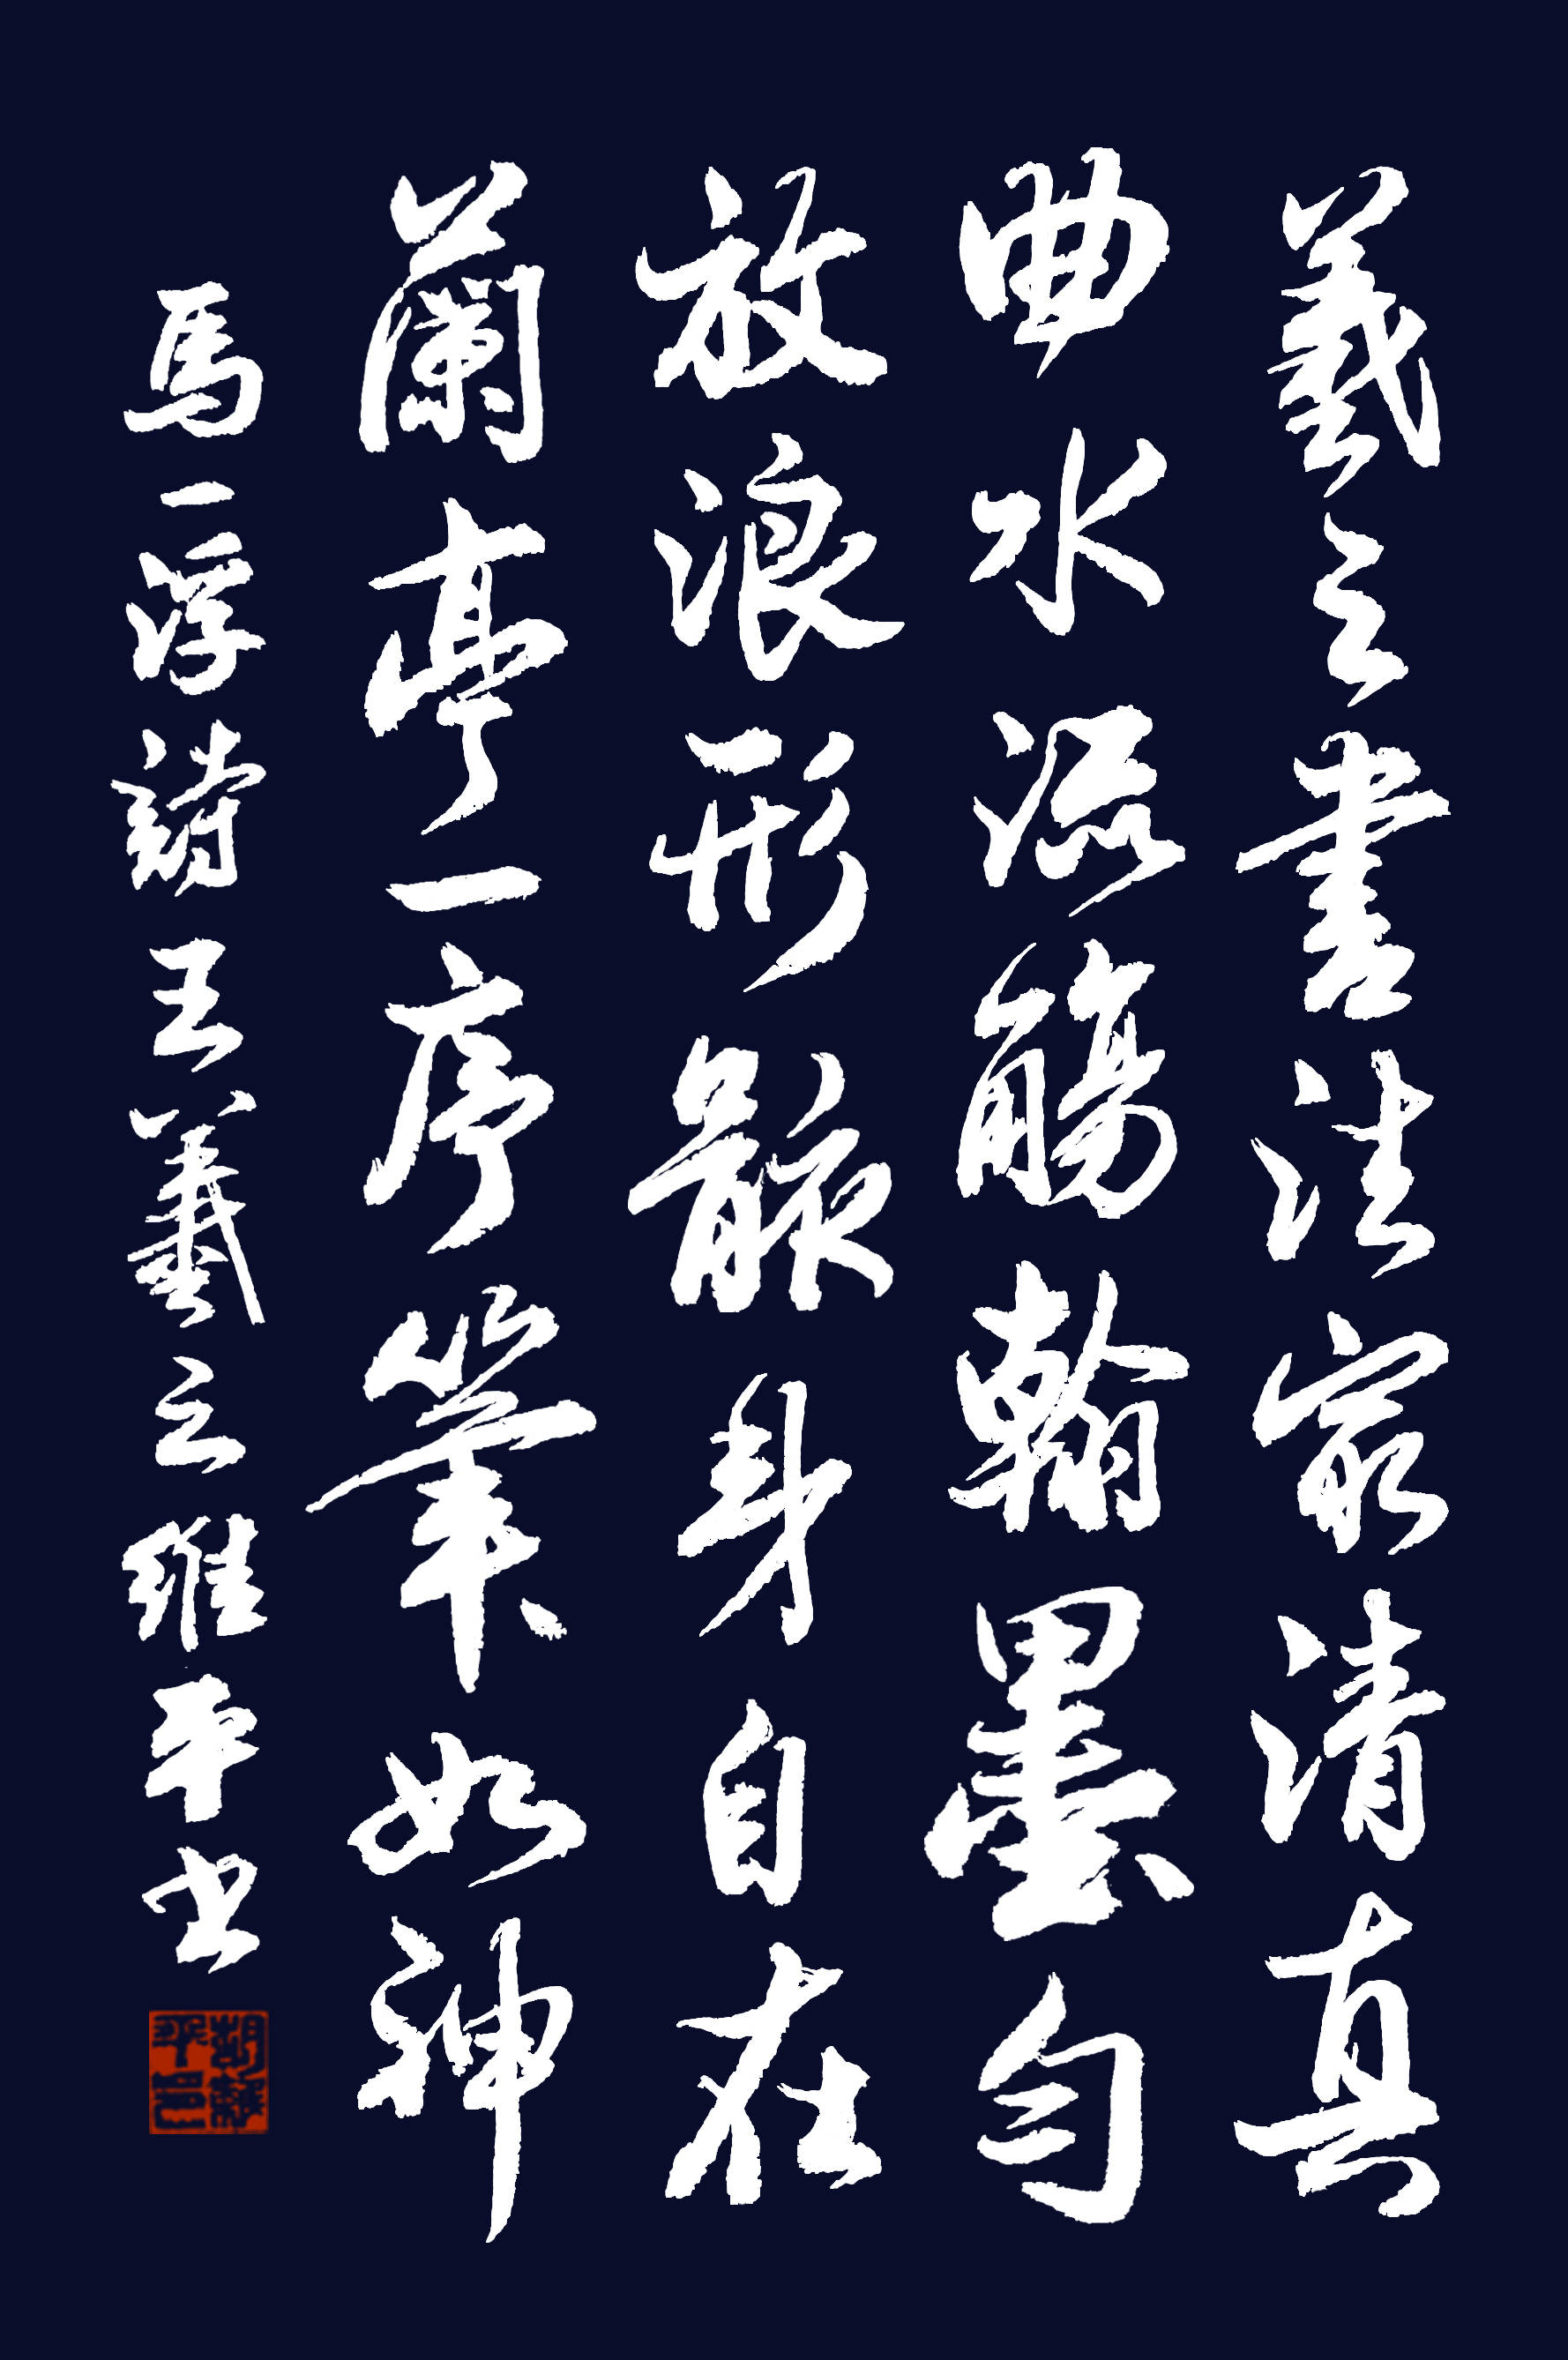 羲之書法最清真
曲水流觴翰墨勻
放浪形骸身自在
蘭亭一序筆如神
馬一浮詩王羲之維平書